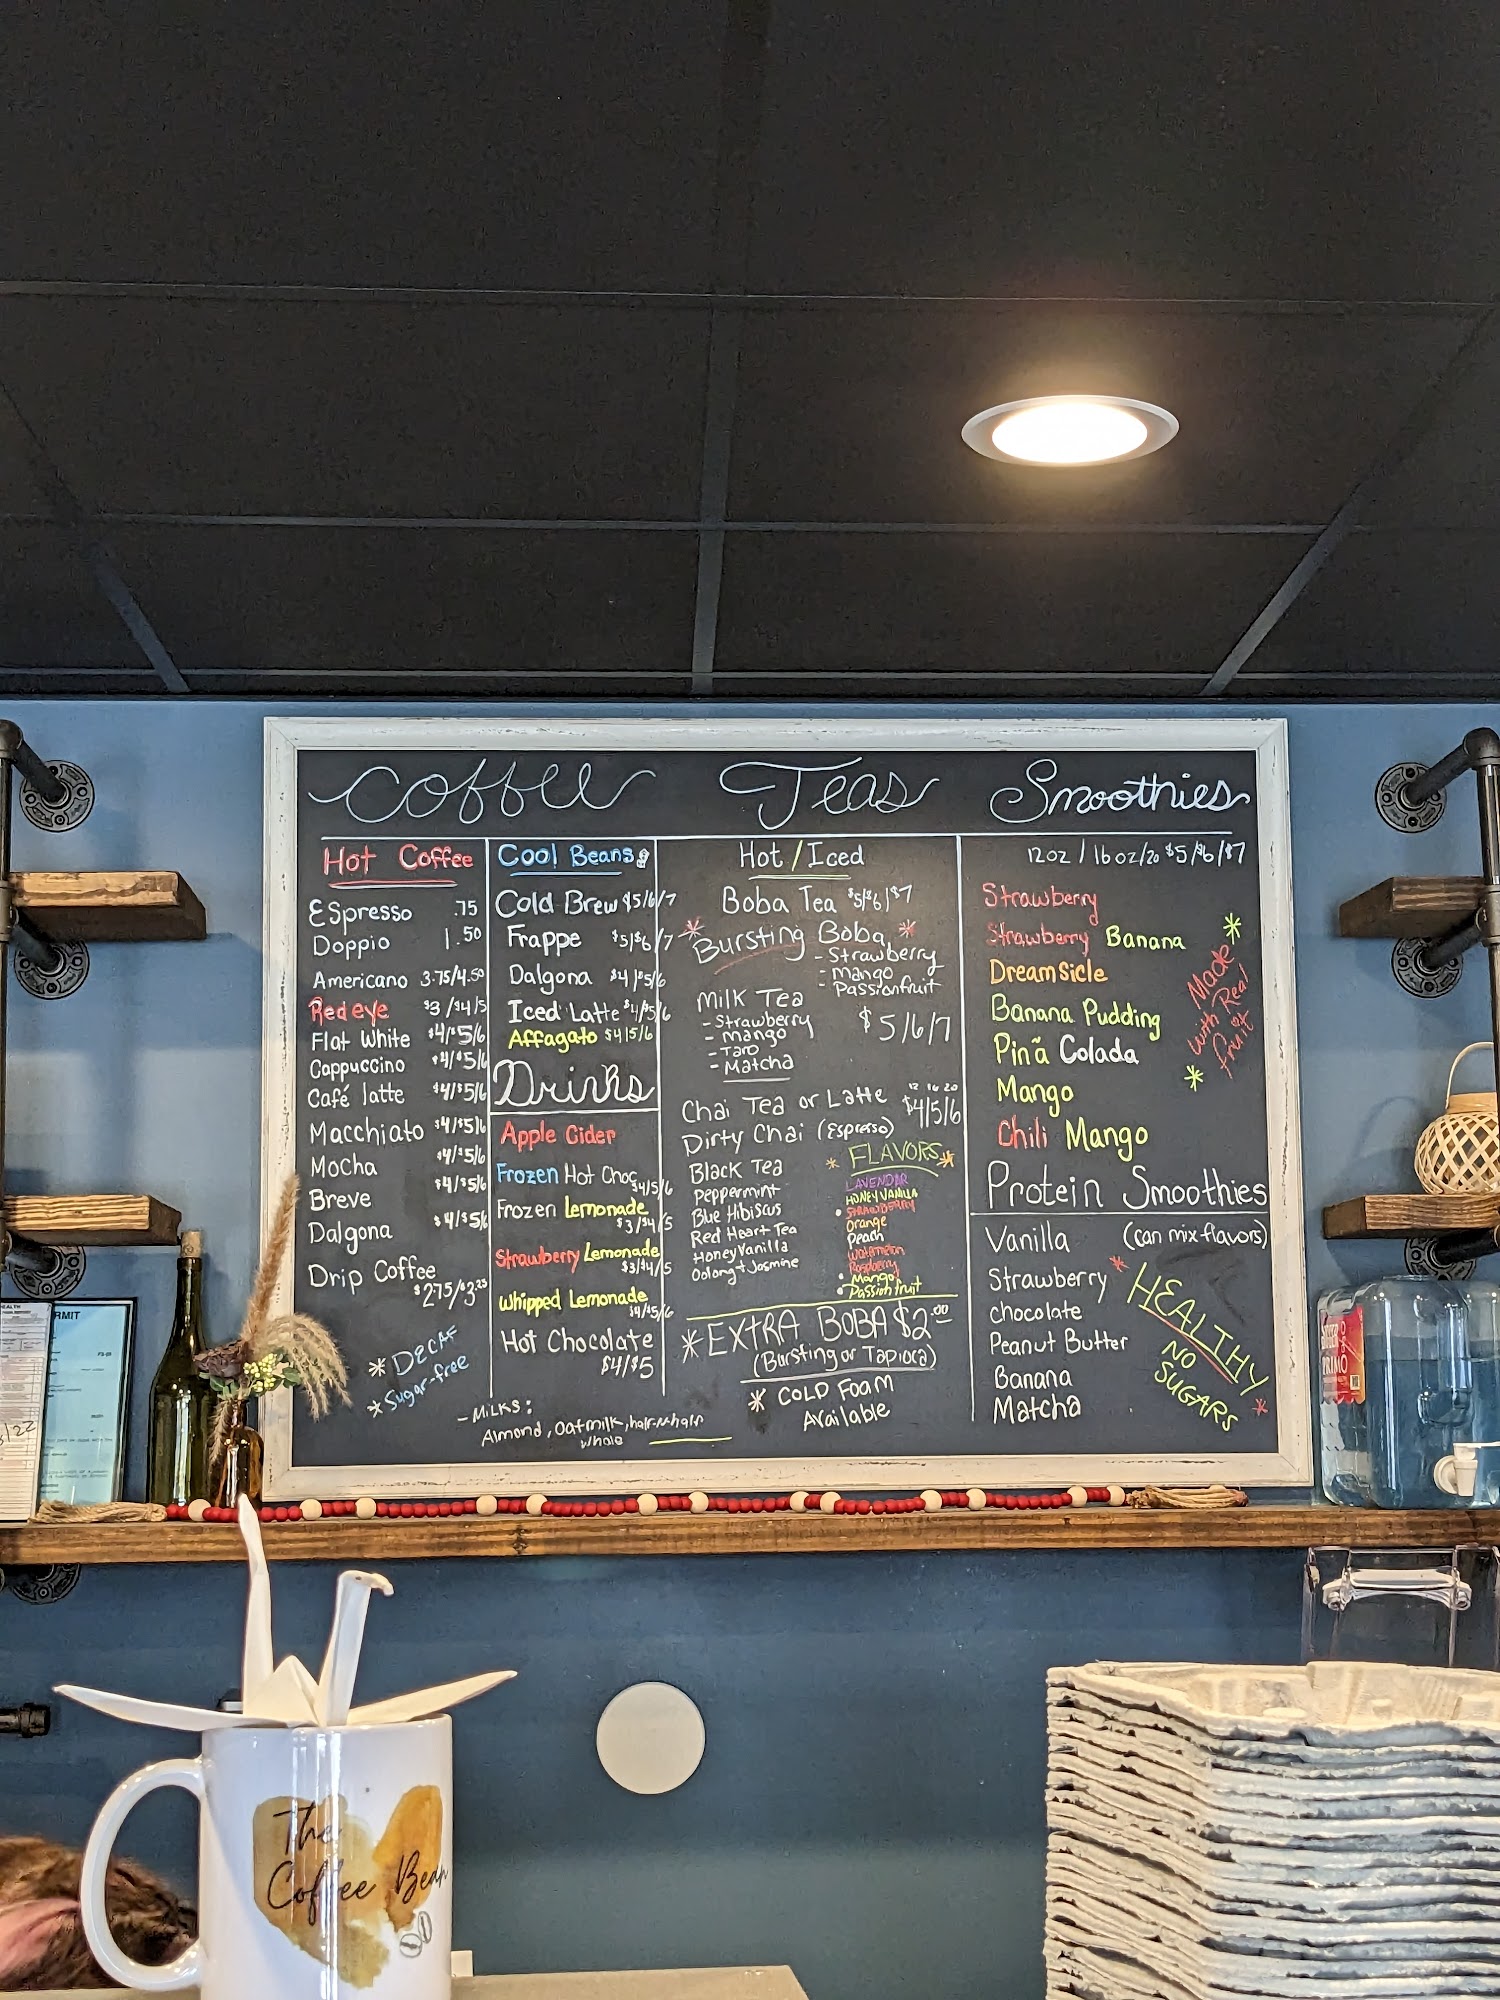 Coffee
Teas
Smoothies
Hot Coffee
Espresso .75
Doppio 1.50
Americano 3.75/4.50
Redeye $3/$4/5
Flat White $4/$5/6
Cappuccino $4/$5/6
Café latte $4/$5/6
Macchiato $4/$5/6
Mocha $4/$5/6
Breve $4/$5/6
Dalgona $4/$5/6
Drip Coffee
$2.75/$3.25
* Decaf
* Sugar-free
Cool Beans
Cold Brew $5/6/7
Frappe $5/$6/7
Dalgona $4/$5/6
Iced Latte $4/$5/6
Affagato $4/5/6
Drinks
Apple Cider
Frozen Hot Choc
$4/5/6
Frozen Lemonade
$3/$4/5
Strawberry Lemonade
$3/$4/5
Whipped Lemonade
$4/$5/6
Hot Chocolate
$4/$5
- Milks:
Almond, Oatmilk, half-n-half
whole
Hot/Iced
Boba Tea $5/$6/$7
* Bursting Boba *
- Strawberry
- mango
- Passionfruit
Milk Tea
- Strawberry
- mango
- Taro
- Matcha
$5/6/7
12 16 20
Chai Tea or Latte $4/5/6
Dirty Chai (Espresso)
Black Tea
Peppermint
Blue Hibiscus
Red Heart Tea
Honey Vanilla
Oolong + Jasmine
* FLAVORS *
LAVENDAR
HONEY VANILLA
STRAWBERRY
Orange
Peach
Watermelon
Raspberry
Mango
Passion fruit
* EXTRA BOBA $2.00
(Bursting or Tapioca)
* COLD FOAM
Available
12oz / 16oz/20 $5/$6/$7
Strawberry
Strawberry Banana
DreamSicle
Banana Pudding
Pinã Colada
Mango
Chili Mango
* Made
with Real
fruit *
Protein Smoothies
Vanilla (can mix flavors)
Strawberry
chocolate
Peanut Butter
Banana
Matcha
* HEALTHY
NO
SUGARS *
The
Coffee Bean